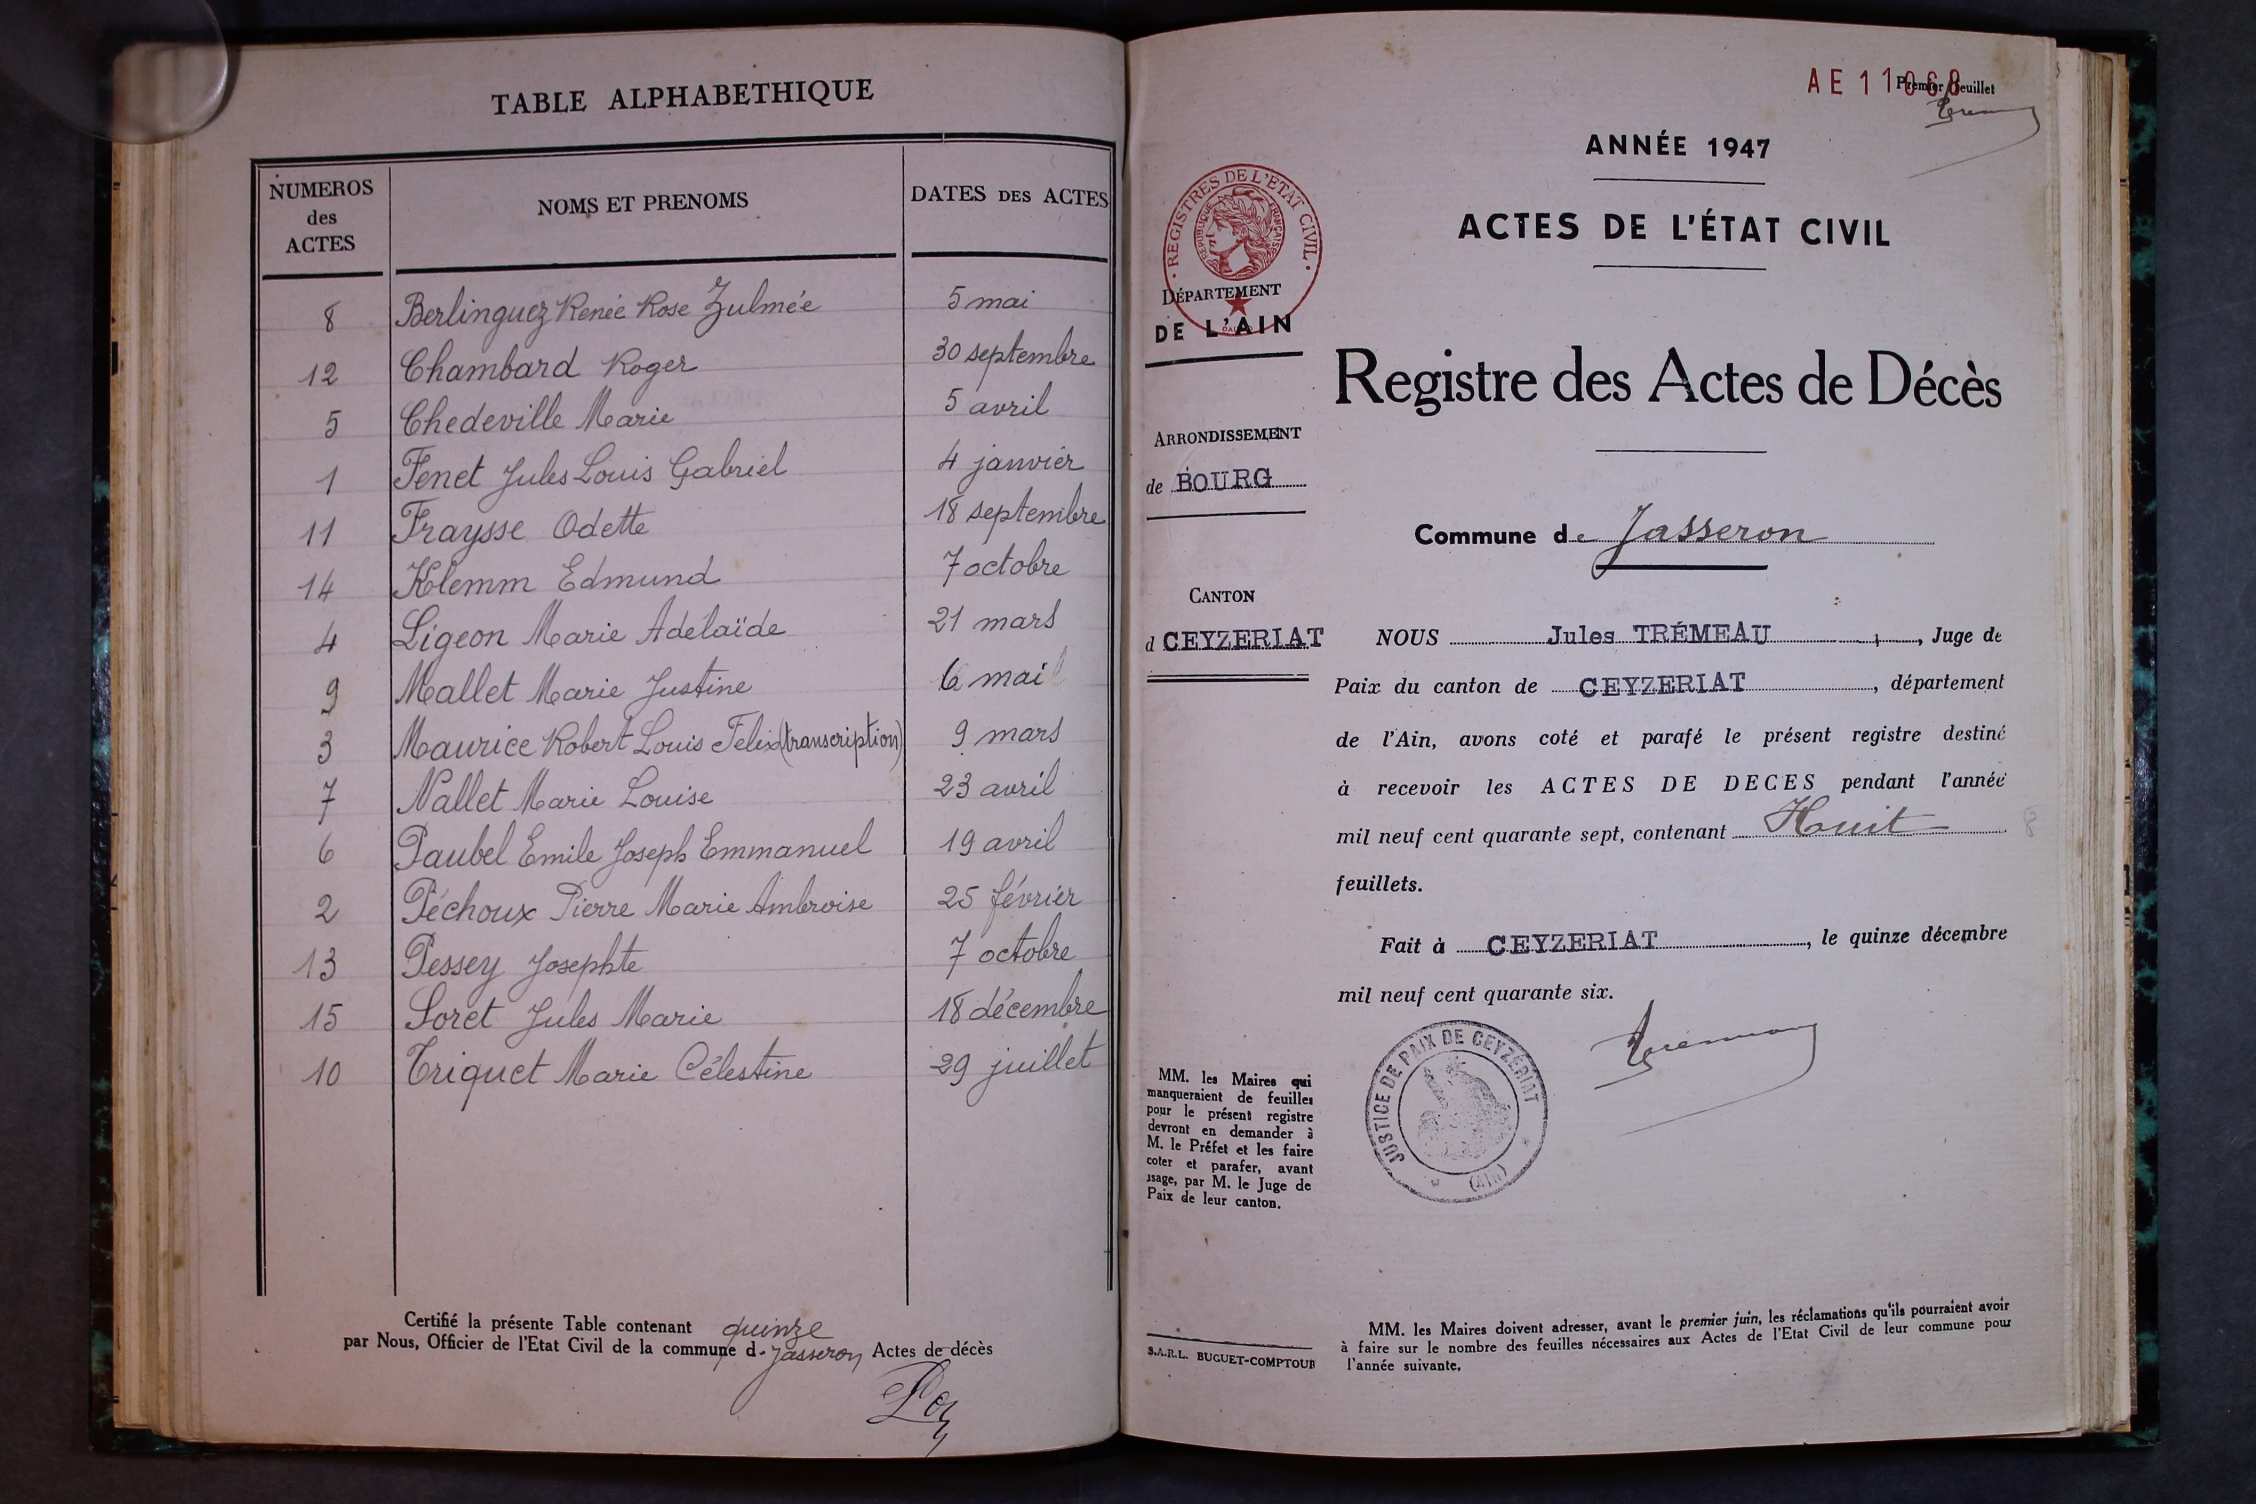 TABLE ALPHABETHIQUE
NUMEROS des ACTES NOMS ET PRENOMS DATES DES ACTES
8 Berlinguez Renée Rose Zulmée 5 mai
12 Chambard Roger 30 septembre
5 Chedeville Marie 5 avril
1 Fenet Jules Louis Gabriel 4 janvier
11 Fraysse Odette 18 septembre
14 Klemm Edmund 7 octobre
4 Ligeon Marie Adélaïde 21 mars
9 Mallet Marie Justine 6 mai
3 Maurice Robert Louis Felix (transcription) 9 mars
7 Nallet Marie Louise 23 avril
6 Paubel Emile Joseph Emmanuel 19 avril
2 Péchoux Pierre Marie Ambroise 25 février
13 Pessey Josephte 7 octobre
15 Soret Jules Marie 18 décembre
10 Triquet Marie Célestine 29 juillet
Certifié la présente Table contenant quinze
par Nous, Officier de l'Etat Civil de la commune d - Jasseron Actes de décès
AE 11068
Premier feuillet
ANNÉE 1947
ACTES DE L'ÉTAT CIVIL
REGISTRES DE L'ETAT CIVIL
REPUBLIQUE FRANÇAISE
DÉPARTEMENT
DE L'AIN
Registre des Actes de Décès
ARRONDISSEMENT
de BOURG
Commune de Jasseron
CANTON
d CEYZERIAT
NOUS Jules TRÉMEAU, Juge de
Paix du canton de CEYZERIAT, département
de l'Ain, avons coté et parafé le présent registre destiné
à recevoir les ACTES DE DECES pendant l'année
mil neuf cent quarante sept, contenant Houit 8
feuillets.
Fait à CEYZERIAT, le quinze décembre
mil neuf cent quarante six.
JUSTICE DE PAIX DE CEYZÉRIAT
(AIN)
MM. les Maires qui
manqueraient de feuilles
pour le présent registre
devront en demander à
M. le Préfet et les faire
coter et parafer, avant
usage, par M. le Juge de
Paix de leur canton.
S.A.R.L. BUGUET-COMPTOUR
MM. les Maires doivent adresser, avant le premier juin, les réclamations qu'ils pourraient avoir
à faire sur le nombre des feuilles nécessaires aux Actes de l'Etat Civil de leur commune pour
l'année suivante.